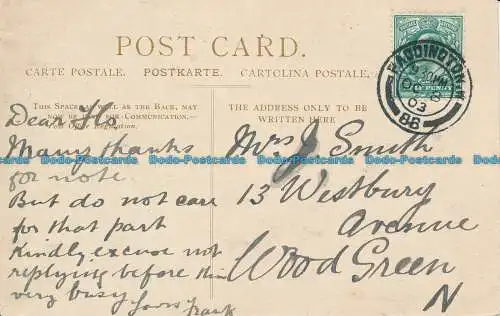 POST CARD.
CARTE POSTALE. POSTKARTE. CARTOLINA POSTALE.
THIS SPACE AS WELL AS THE BACK, MAY
NOW BE USED FOR COMMUNICATION,
THE ADDRESS ONLY TO BE
WRITTEN HERE
PADDINGTON
03
86
PENNY
Dear Flo
Many thanks
for note
But do not care
for that part
Kindly excuse not
replying before this
very busy
Yours Frank
Mrs J Smith
13 Westbury
Avenue
Wood Green
N
Dodo-Postcards Dodo-Postcards Dodo-Postcards Dodo-Postcards